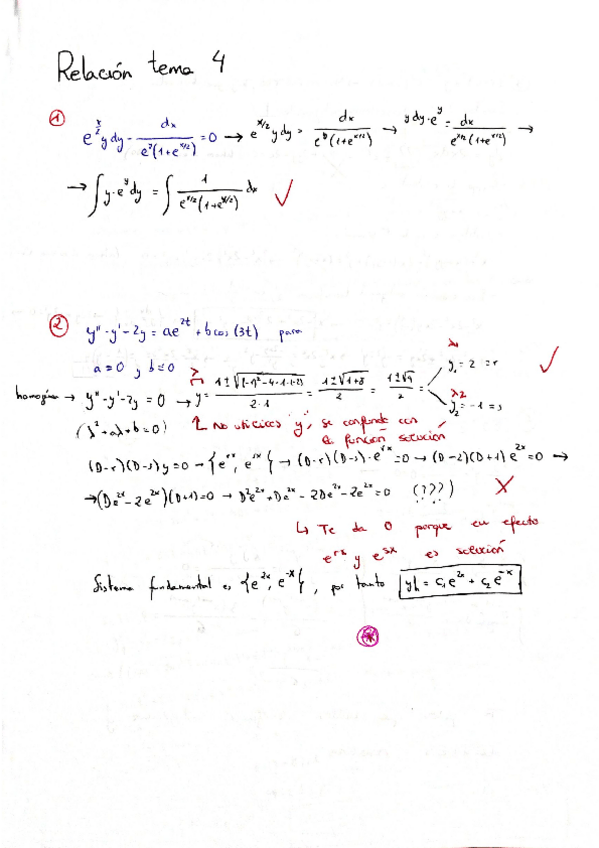 Relación tema 4
① e^{x/2} y dy - dx / e^y(1+e^{x/2}) = 0 → e^{x/2} y dy = dx / e^y(1+e^{x/2}) → y dy · e^y = dx / e^{x/2}(1+e^{x/2}) →
→ ∫ y · e^y dy = ∫ 1 / e^{x/2}(1+e^{x/2}) dx ✓
② y'' - y' - 2y = ae^{2t} + b cos(3t) para
a = 0 y b = 0
homogénea → y'' - y' - 2y = 0 → y = 1 ± √((-1)² - 4 · 1 · (-2)) / 2 · 1 = 1 ± √(1+8) / 2 = 1 ± √9 / 2 λ1 y₁ = 2 = r ✓
λ2 y₂ = -1 = s
(λ² + aλ + b = 0) ↑ No utilices "y", se confunde con la función solución
(D-r)(D-s)y = 0 → {e^{rx}, e^{sx}} → (D-r)(D-s) · e^{rx} = 0 → (D-2)(D+1)e^{2x} = 0 →
→ (De^{2x} - 2e^{2x})(D+1) = 0 → D²e^{2x} + De^{2x} - 2De^{2x} - 2e^{2x} = 0 (???) ✗
↳ Te da 0 porque en efecto
e^{rx} y e^{sx} es solución
Sistema fundamental es {e^{2x}, e^{-x}}, por tanto yh = c₁e^{2x} + c₂e^{-x}